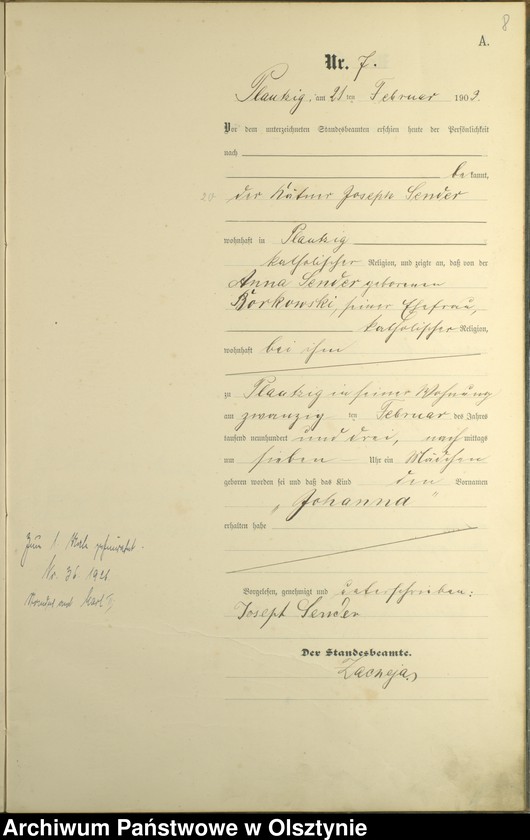 8
A.
Nr. 7.
Plautzig, am 21 ten Februar 1903.
Vor dem unterzeichneten Standesbeamten erschien heute der Persönlichkeit
nach
be kannt,
der Kätner Joseph Sender
wohnhaft in Plautzig
katholischer Religion, und zeigte an, daß von der
Anna Sender geborenen
Borkowski, seiner Ehefrau,
katholischer Religion,
wohnhaft bei ihm
zu Plautzig in seiner Wohnung
am zwanzig ten Februar des Jahres
tausend neunhundert und drei, nach mittags
um sieben Uhr ein Mädchen
geboren worden sei und daß das Kind den Vornamen
„Johanna"
erhalten habe
Zum 1. Male geheiratet
Nr. 36 1926
Vorgelesen, genehmigt und unterschrieben:
Joseph Sender
Der Standesbeamte.